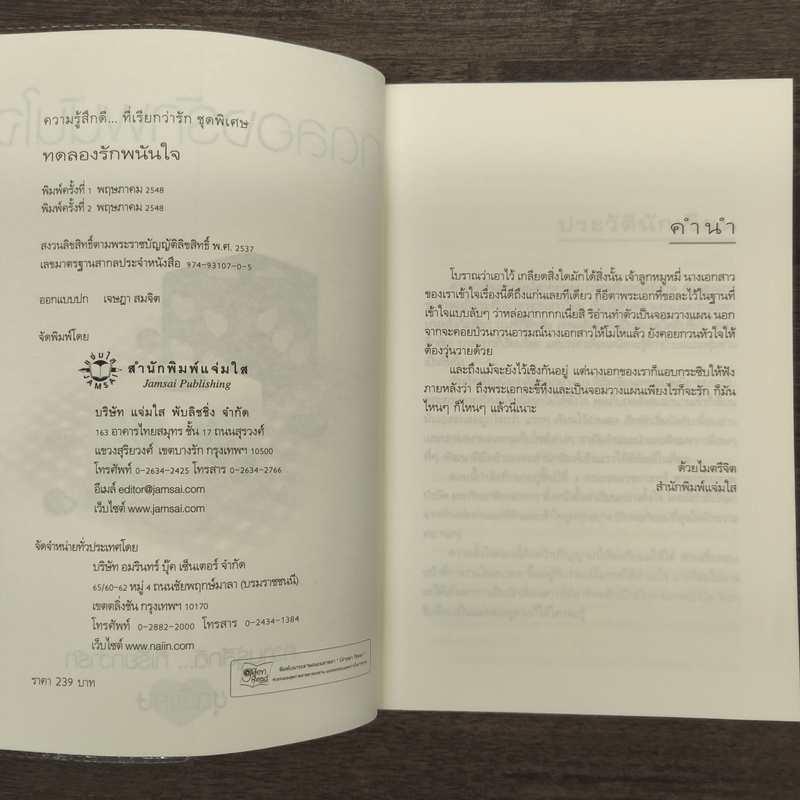 ความรู้สึกดี... ที่เรียกว่ารัก ชุดพิเศษ
ทดลองรักพนันใจ
พิมพ์ครั้งที่ 1 พฤษภาคม 2548
พิมพ์ครั้งที่ 2 พฤษภาคม 2548
สงวนลิขสิทธิ์ตามพระราชบัญญัติลิขสิทธิ์ พ.ศ. 2537
เลขมาตรฐานสากลประจำหนังสือ 974-93107-0-5
ออกแบบปก เจษฎา สมจิต
จัดพิมพ์โดย
แจ่มใส
JAMSAI
สำนักพิมพ์แจ่มใส
Jamsai Publishing
บริษัท แจ่มใส พับลิชชิ่ง จำกัด
163 อาคารไทยสมุทร ชั้น 17 ถนนสุรวงศ์
แขวงสุริยวงศ์ เขตบางรัก กรุงเทพฯ 10500
โทรศัพท์ 0-2634-2425 โทรสาร 0-2634-2766
อีเมล์ editor@jamsai.com
เว็บไซต์ www.jamsai.com
จัดจำหน่ายทั่วประเทศโดย
บริษัท อมรินทร์ บุ๊ค เซ็นเตอร์ จำกัด
65/60-62 หมู่ 4 ถนนชัยพฤกษ์มาลา (บรมราชชนนี)
เขตตลิ่งชัน กรุงเทพฯ 10170
โทรศัพท์ 0-2882-2000 โทรสาร 0-2434-1384
เว็บไซต์ www.naiin.com
Green Read
พิมพ์บนกระดาษถนอมสายตา "Green Read"
ราคา 239 บาท
คำนำ
โบราณว่าเอาไว้ เกลียดสิ่งใดมักได้สิ่งนั้น เจ้าลูกหมูหมี่ นางเอกสาว
ของเราเข้าใจเรื่องนี้ดีถึงแก่นเลยทีเดียว ก็อีตาพระเอกที่ขอละไว้ในฐานที่
เข้าใจแบบลับๆ ว่าหล่อมากกกกเนี่ยสิ ริอ่านทำตัวเป็นจอมวางแผน นอก
จากจะคอยป่วนกวนอารมณ์นางเอกสาวให้โมโหแล้ว ยังคอยกวนหัวใจให้
ต้องวุ่นวายด้วย
และถึงแม้จะยังไว้เชิงกันอยู่ แต่นางเอกของเราก็แอบกระซิบให้ฟัง
ภายหลังว่า ถึงพระเอกจะขี้หึงและเป็นจอมวางแผนเพียงไรก็จะรัก ก็มัน
ไหนๆ ก็ไหนๆ แล้วนี่เนาะ
ด้วยไมตรีจิต
สำนักพิมพ์แจ่มใส